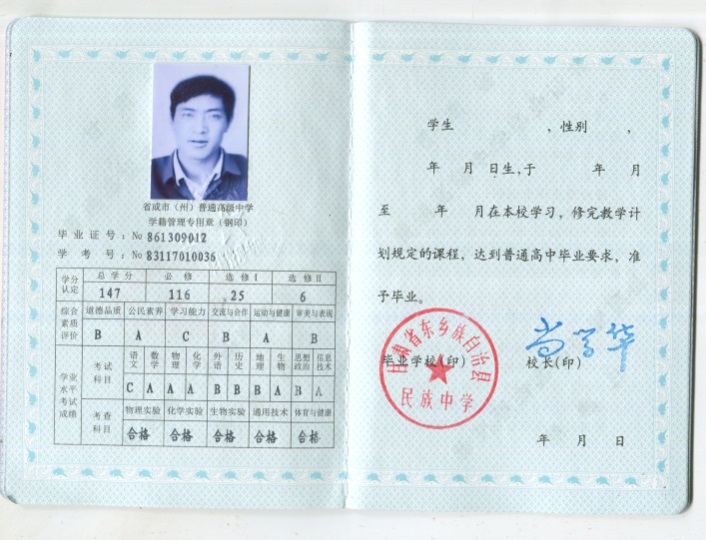 省或市（州）普通高级中学
学籍管理专用章（钢印）
毕业证号：No 861309012
学考号：No 83117010036
学分认定 总学分 必修 选修Ⅰ 选修Ⅱ
147 116 25 6
综合素质评价 道德品质 公民素养 学习能力 交流与合作 运动与健康 审美与表现
B A C B A B
学业水平考试成绩 考试科目 语文 数学 物理 化学 外语 历史 地理 生物 思想政治 信息技术
C A A A B B B A B A
考查科目 物理实验 化学实验 生物实验 通用技术 体育与健康
合格 合格 合格 合格 合格
学生 ，性别 ，
年 月 日生，于 年 月
至 年 月在本校学习，修完教学计
划规定的课程，达到普通高中毕业要求，准
予毕业。
甘肃省东乡族自治县
民族中学
毕业学校(印) 校长(印)
尚学华
年 月 日